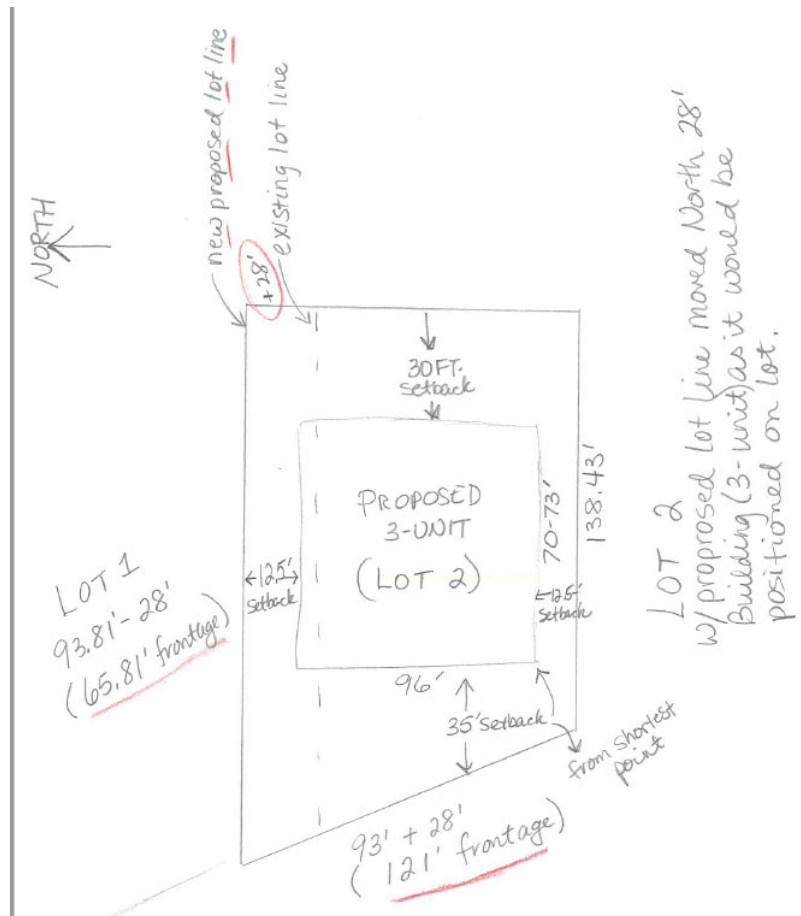 NORTH
new proposed lot line
existing lot line
+28'
30 FT.
setback
PROPOSED
3-UNIT
(LOT 2)
←12.5'→
setback
70-73'
138.43'
←12.5'
setback
96'
35' setback
from shortest
point
LOT 1
93.81' - 28'
(65.81' frontage)
93' + 28'
(121' frontage)
LOT 2
w/ proprosed lot line moved North 28'
Building (3-unit) as it would be
positioned on lot.